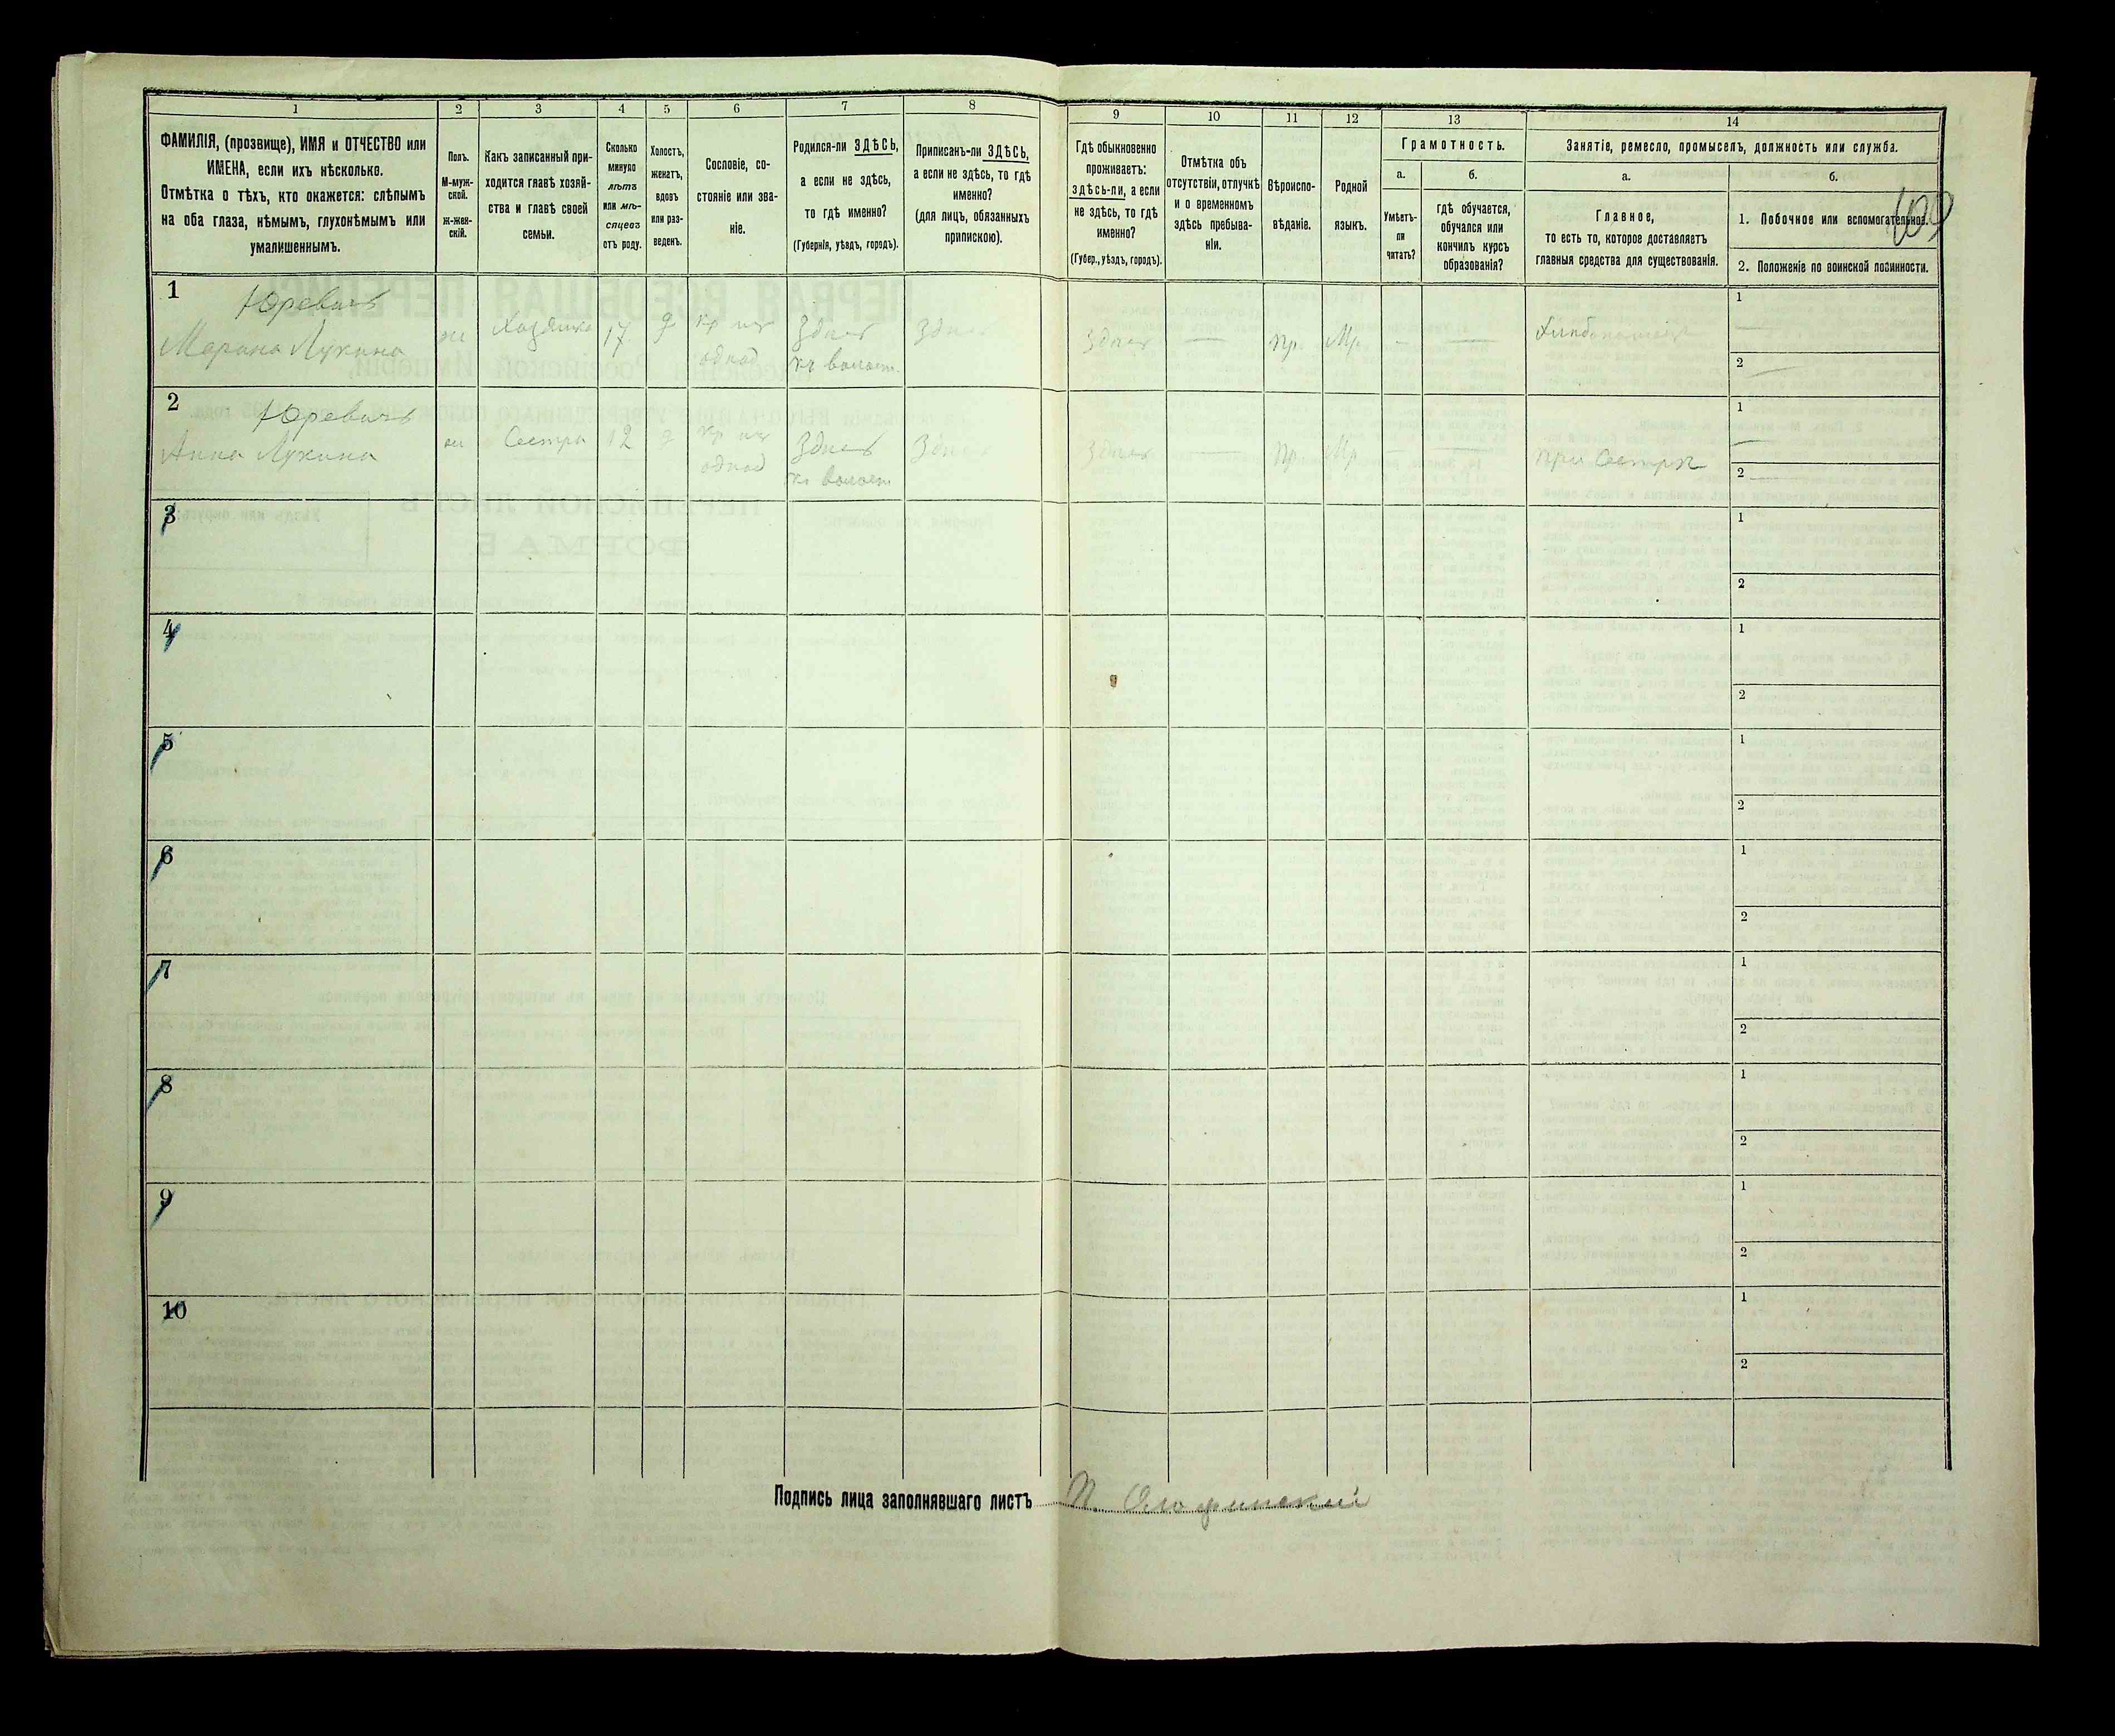 1
2
3
4
5
6
7
8
ФАМИЛІЯ, (прозвище), ИМЯ и ОТЧЕСТВО или
ИМЕНА, если ихъ нѣсколько.
Отмѣтка о тѣхъ, кто окажется: слѣпымъ
на оба глаза, нѣмымъ, глухонѣмымъ или
умалишеннымъ.
Полъ.
М-муж-
ской.
ж-жен-
скій.
Какъ записанный при-
ходится главѣ хозяй-
ства и главѣ своей
семьи.
Сколько
минуло
лѣтъ
или мѣ-
сяцевъ
отъ роду.
Холостъ,
женатъ,
вдовъ
или раз-
веденъ.
Сословіе, со-
стояніе или зва-
ніе.
Родился-ли ЗДѢСЬ,
а если не здѣсь,
то гдѣ именно?
(Губернія, уѣздъ, городъ).
Приписанъ-ли ЗДѢСЬ,
а если не здѣсь, то гдѣ
именно?
(для лицъ, обязанныхъ
припискою).
9
10
11
12
13
14
Гдѣ обыкновенно
проживаетъ:
здѣсь-ли, а если
не здѣсь, то гдѣ
именно?
(Губер., уѣздъ, городъ).
Отмѣтка объ
отсутствіи, отлучкѣ
и о временномъ
здѣсь пребыва-
ніи.
Вѣроиспо-
вѣданіе.
Родной
языкъ.
Грамотность.
а.
Умѣетъ-
ли
читать?
б.
гдѣ обучается,
обучался или
кончилъ курсъ
образованія?
Занятіе, ремесло, промыселъ, должность или служба.
а.
Главное,
то есть то, которое доставляетъ
главныя средства для существованія.
б.
1. Побочное или вспомогательное.
2. Положеніе по воинской повинности.
409
1
Юревичъ
Марина Лукина
ж
Хозяйка
17
д
кр изъ
однод
Здѣсь
къ волост.
Здѣсь
Здѣсь
—
Пр.
Мр.
-
—
1
2
2
Юревичъ
Анна Лукина
ж
Сестра
12
д
кр изъ
однод
Здѣсь
къ волост
Здѣсь
Здѣсь
—
Пр.
Мр
-
—
при Сестрѣ
1
2
3
1
2
4
1
2
5
1
2
6
1
2
7
1
2
8
1
2
9
1
2
10
1
2
Подпись лица заполнявшаго листъ